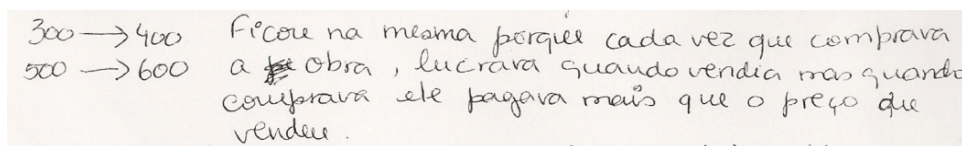 300 → 400 Ficou na mesma porque cada vez que comprava
500 → 600 a obra, lucrava quando vendia mas quando
comprava ele pagava mais que o preço que
vendeu.